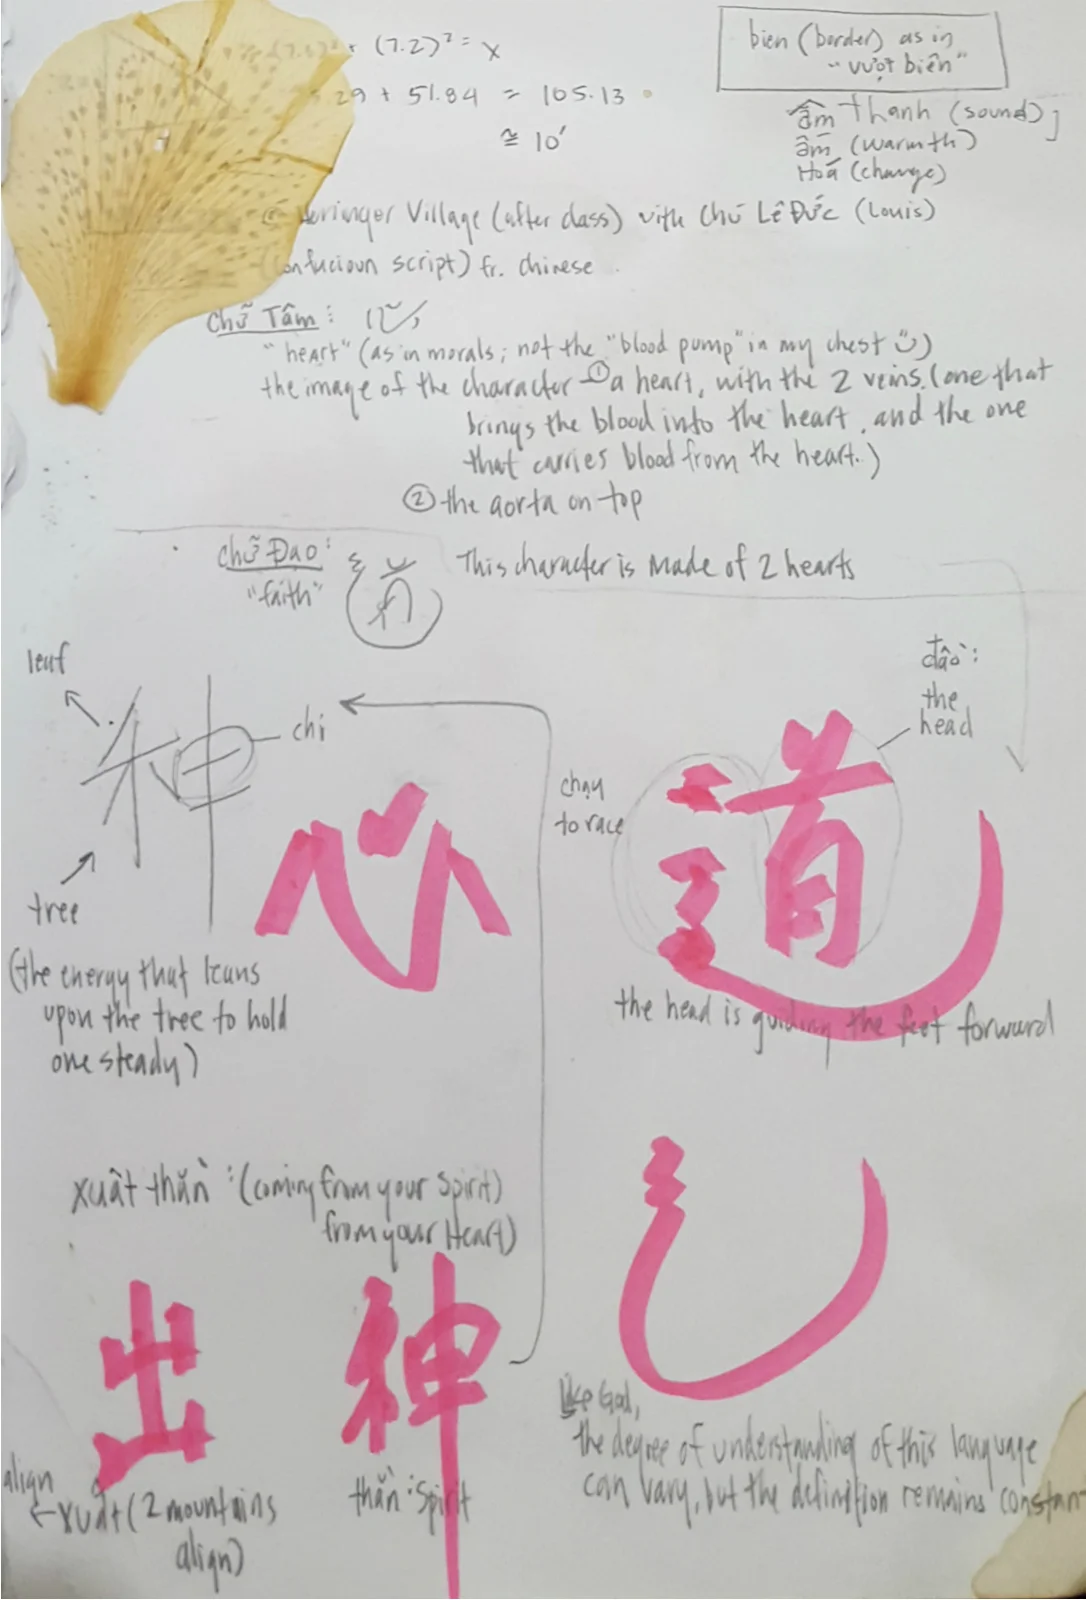 + (7.2)² = x
29 + 51.84 = 105.13
≅ 10'
bien (border) as in
"vượt biên"
âm thanh (sound)
ấm (warmth)
Hoá (change)
Village (after class) with Chú Lê Đức (Louis)
script) fr. Chinese
Chữ Tâm: 心
"heart" (as in morals; not the "blood pump" in my chest)
the image of the character – ① a heart, with the 2 veins. (one that
brings the blood into the heart, and the one
that carries blood from the heart.)
② the aorta on top
Chữ Đạo: 道 This character is made of 2 hearts
"faith"
leaf
神
chi
tree
(the energy that leans
upon the tree to hold
one steady)
心
đầo:
the
head
chạy
to race
道
the head is guiding the feet forward
xuất thần: (coming from your spirit)
from your Heart)
出神
align
← xuất (2 mountains
align)
thần: Spirit
辶
Like God,
the degree of understanding of this language
can vary, but the definition remains constan